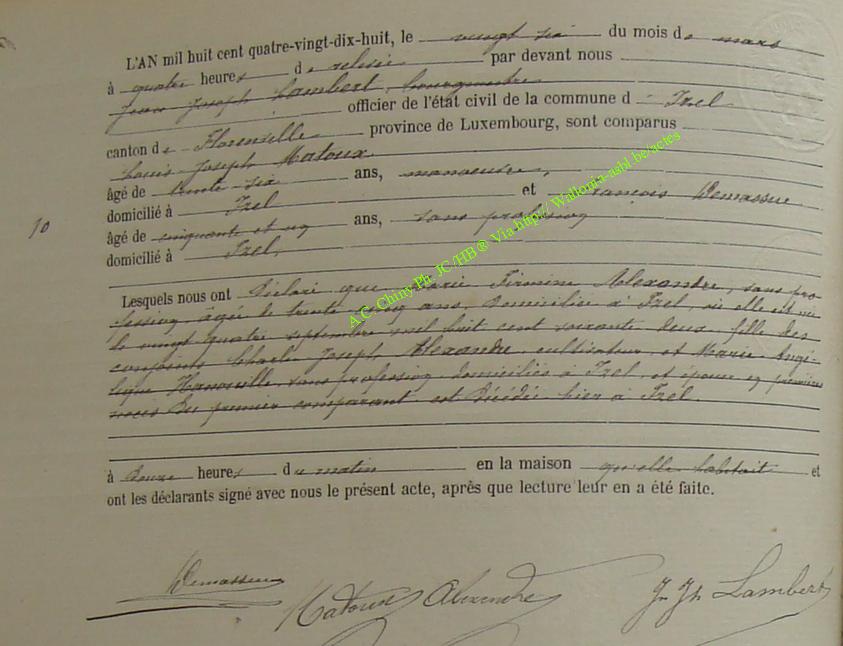 L'AN mil huit cent quatre-vingt-dix-huit, le vingt six du mois de mars
à quatre heures de relevée par devant nous
Jean Joseph Lambert, bourgmestre
officier de l'état civil de la commune d'Izel
canton de Florenville province de Luxembourg, sont comparus
Louis Joseph Matoux
âgé de trente six ans, manoeuvre,
domicilié à Izel et François Demasseur
10
âgé de cinquante et un ans, sans profession
domicilié à Izel,
Lesquels nous ont déclaré que Marie Firmine Alexandre, sans pro-
fession, âgée de trente cinq ans, domiciliée à Izel, où elle est née
le vingt quatre septembre mil huit cent soixante deux, fille des
conjoints Charles Joseph Alexandre, cultivateur, et Marie Angé-
lique, sans profession, domiciliés à Izel, et épouse en premières
noces du premier comparant est décédée hier à Izel
à douze heures du matin en la maison qu'elle habitait et
ont les déclarants signé avec nous le présent acte, après que lecture leur en a été faite.
Demasseur
Matoux Alexandre
Jn Jh Lambert
A.C. Chiny Ph. JC/HB® Via http://Wallonia-asbl.be/actes